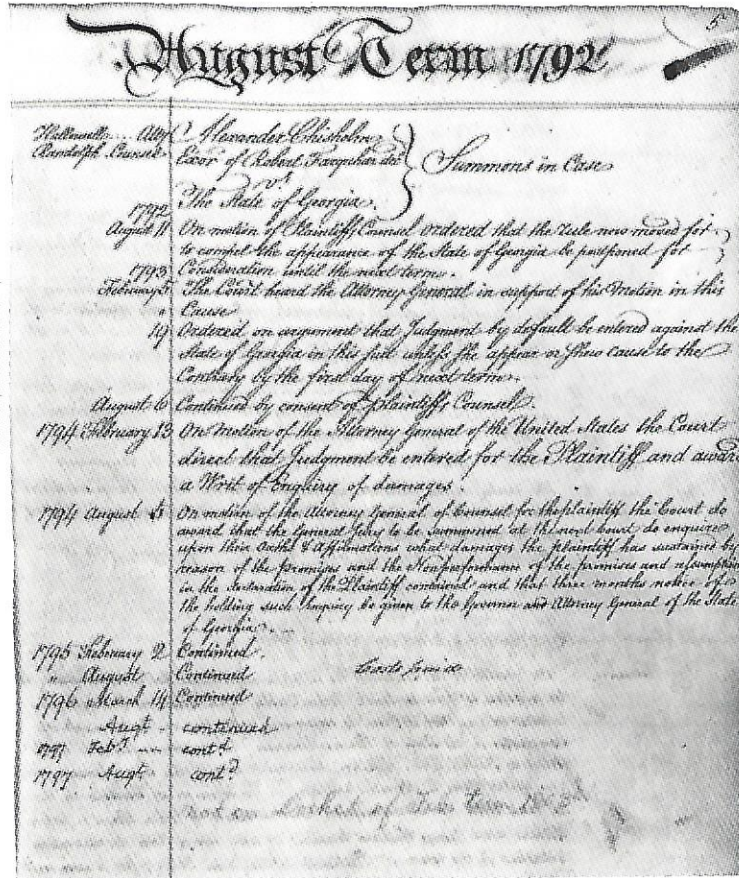 5
August Term 1792
Hallowell Atty } Alexander Chisholm
Randolph Counsel Exor of Robert Farquhar dec } Summons in Case
vs
1792 The State of Georgia.
August 11 On motion of Plaintiffs Counsel ordered that the rule now moved for
to compel the appearance of the State of Georgia be postponed for
1793 Consideration until the next term.
February 5 The Court heard the Attorney General in support of his Motion in this
" Cause
19 Ordered on argument that Judgment by default be entered against the
State of Georgia in this suit unless she appear or shew cause to the
Contrary by the first day of next term.
August 6 Continued by consent of plaintiffs Counsel.
1794 February 13 On Motion of the Attorney General of the United States the Court
direct that Judgment be entered for the Plaintiff and award
a Writ of Enquiry of damages.
1794 August 5 On motion of the Attorney General of Counsel for the plaintiff the Court do
award that the General Jury to be summoned at the next Court do enquire
upon their Oaths & Affirmations what damages the plaintiff has sustained by
reason of the premises and the Nonperformance of the promises and assumptions
in the declaration of the Plaintiff contained and that three months notice of
the holding such enquiry be given to the Governor and Attorney General of the State
of Georgia.
1795 February 2 Continued.
" August Continued
1796 March 14 Continued
Augt - continued
1797 Feby -- contd
1797 Augt contd